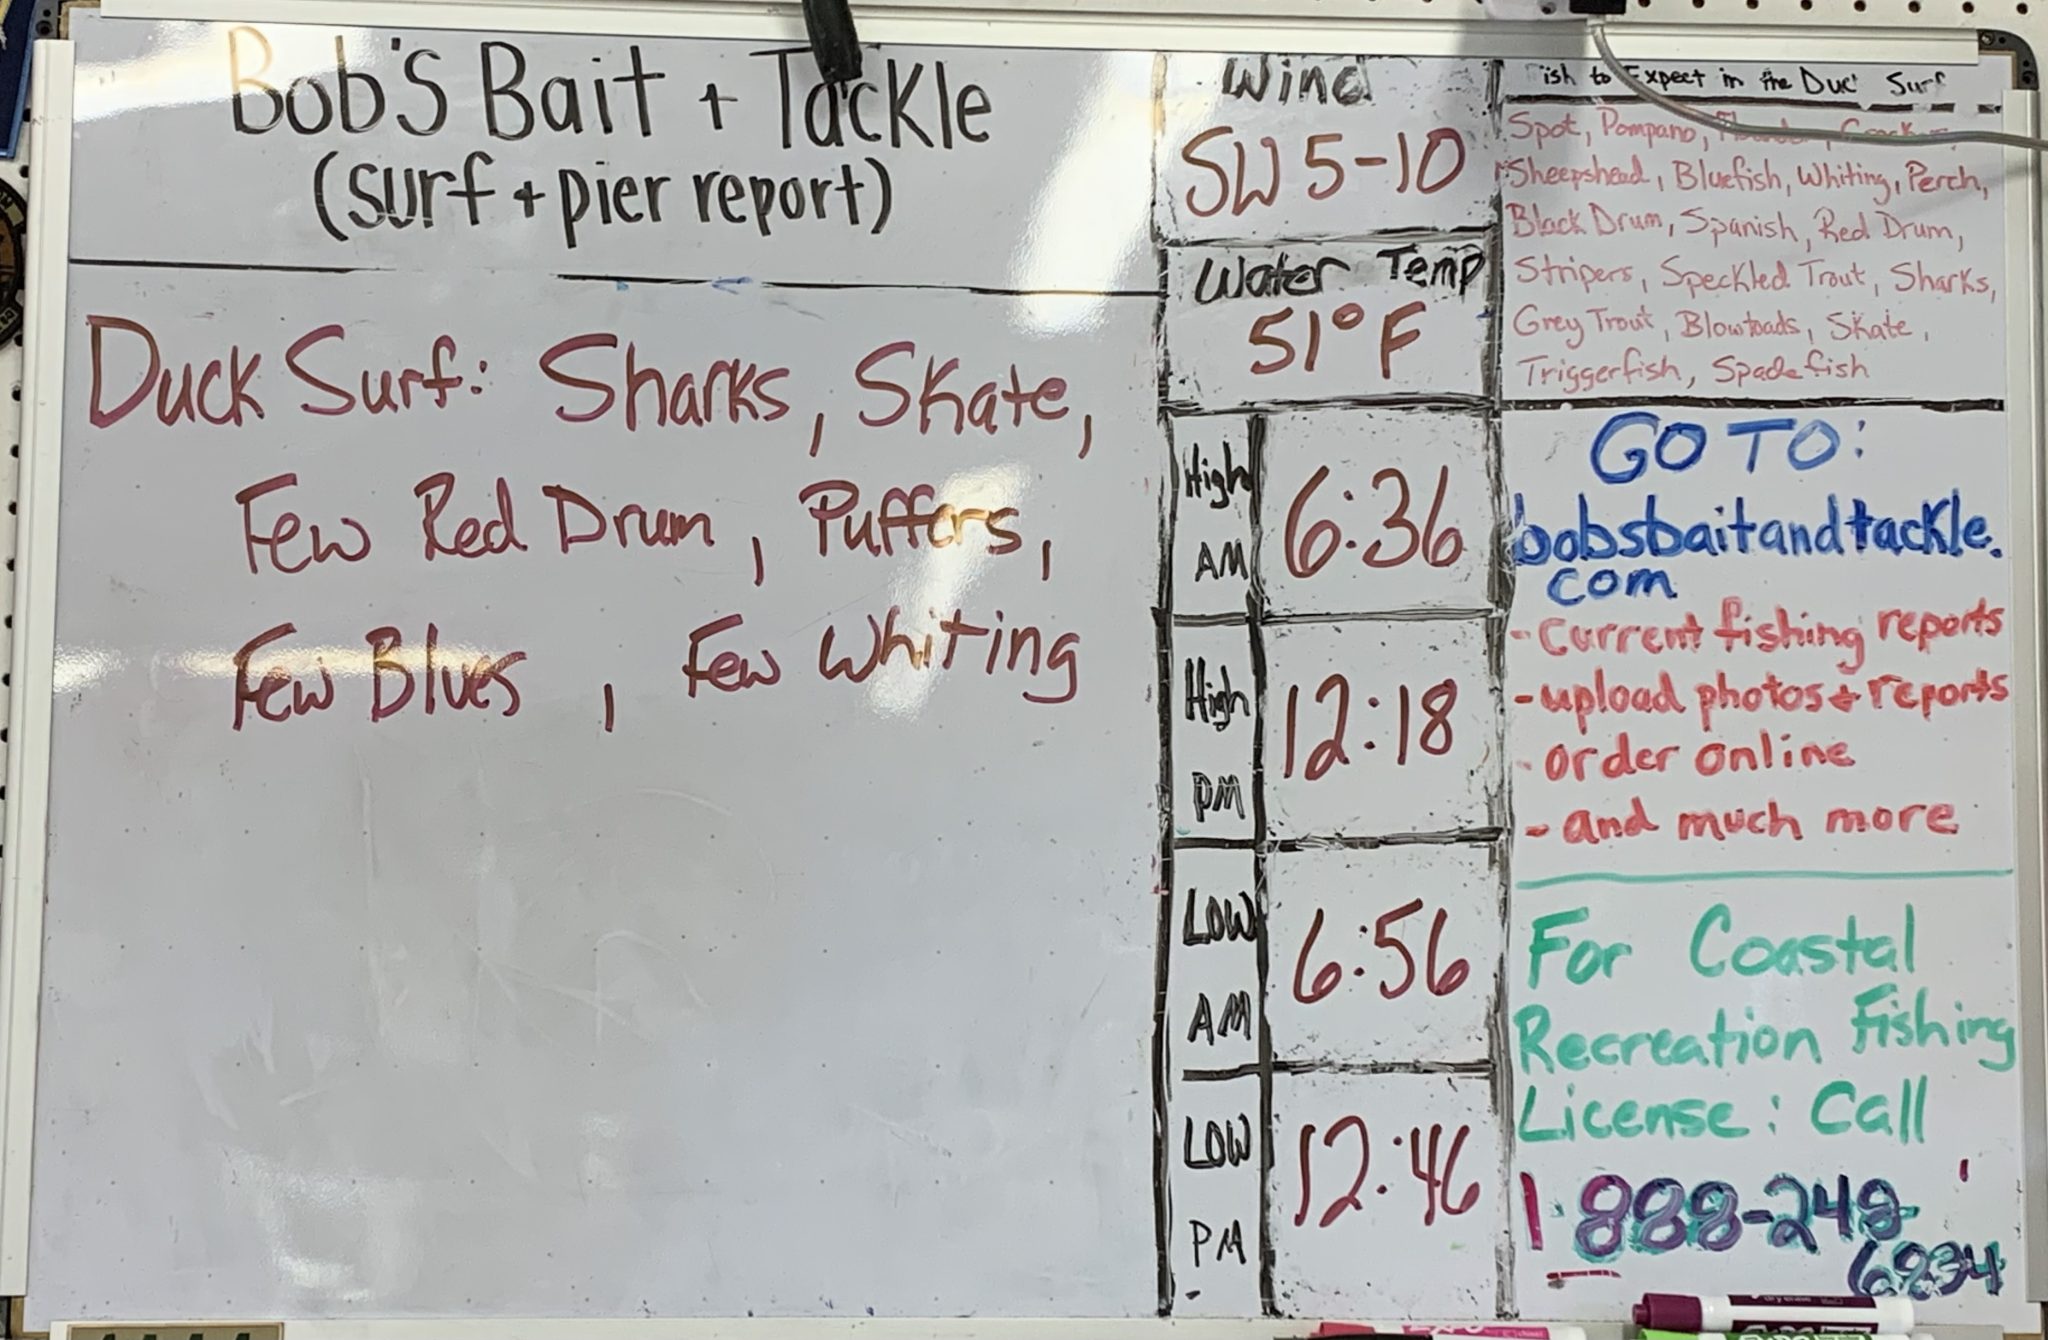 Bob's Bait + Tackle
(surf + pier report)
Duck Surf: Sharks, Skate,
Few Red Drum, Puffers,
Few Blues, Few Whiting
Wind
SW 5-10
Water Temp
51°F
High
AM
6:36
High
PM
12:18
LOW
AM
6:56
LOW
PM
12:46
ish to Expect in the Duck Surf
Spot, Pompano, Flounder, Croaker,
Sheepshead, Bluefish, Whiting, Perch,
Black Drum, Spanish, Red Drum,
Stripers, Speckled Trout, Sharks,
Grey Trout, Blowtoads, Skate,
Triggerfish, Spadefish
GO TO:
bobsbaitandtackle.
com
- Current fishing reports
- upload photos + reports
- order online
- and much more
For Coastal
Recreation Fishing
License: Call
1 888-248-
6834